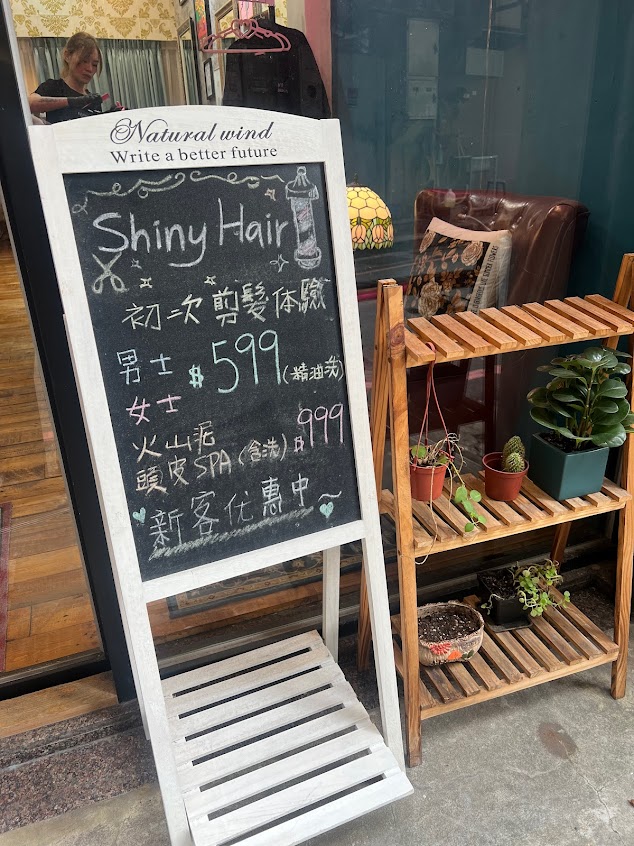 Natural wind
Write a better future
Shiny Hair
初次剪髮体驗
男士 $599 (精油洗)
女士
火山泥
頭皮SPA(含洗) $999
新客优惠中~